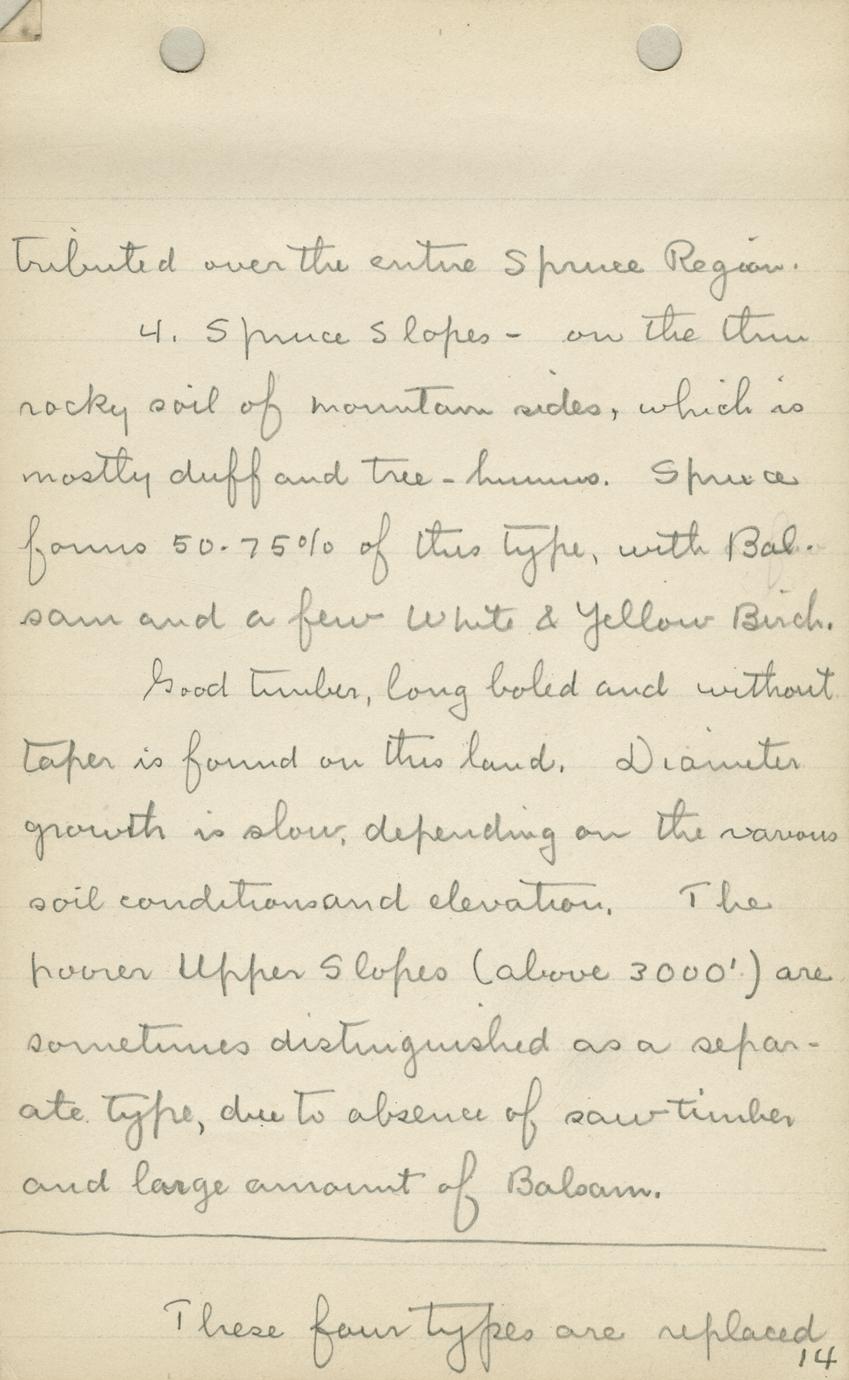 tributed over the entire Spruce Region.
4. Spruce Slopes - on the thin
rocky soil of mountain sides, which is
mostly duff and tree-humus. Spruce
forms 50-75% of this type, with Bal-
sam and a few White & Yellow Birch.
Good timber, long boled and without
taper is found on this land. Diameter
growth is slow, depending on the various
soil conditions and elevation. The
poorer Upper Slopes (above 3000') are
sometimes distinguished as a separ-
ate type, due to absence of saw-timber
and large amount of Balsam.
These four types are replaced
14